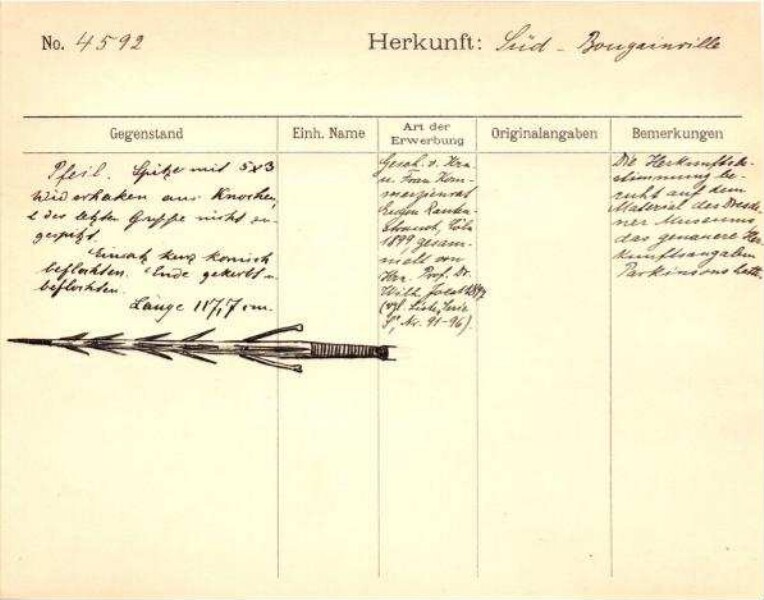 No. 4592
Herkunft: Süd - Bougainville
Gegenstand
Einh. Name
Art der
Erwerbung
Originalangaben
Bemerkungen
Pfeil. Spitze mit 5x3
Widerhaken aus Knochen,
2 des letzten Gruppe nicht zu-
gespitzt.
Einsatz kurz konisch
beflochten. Ende gekerbt u.
beflochten.
Länge 117,7 cm.
Gesch. v. Hrn.
u. Frau Kom-
merzienrat
Eugen Rauten-
strauch, Köln
1899 gesam-
melt von
Hrn. Prof. Dr.
Wilh. Joest 1897
(vgl. Liste, Serie
S, Nr. 91-96).
Die Herkunftsbe-
stimmung be-
ruht auf dem
Material des Dresde-
ner Museums
das genauere Her-
kunftsangaben
Parkinsons hatte.